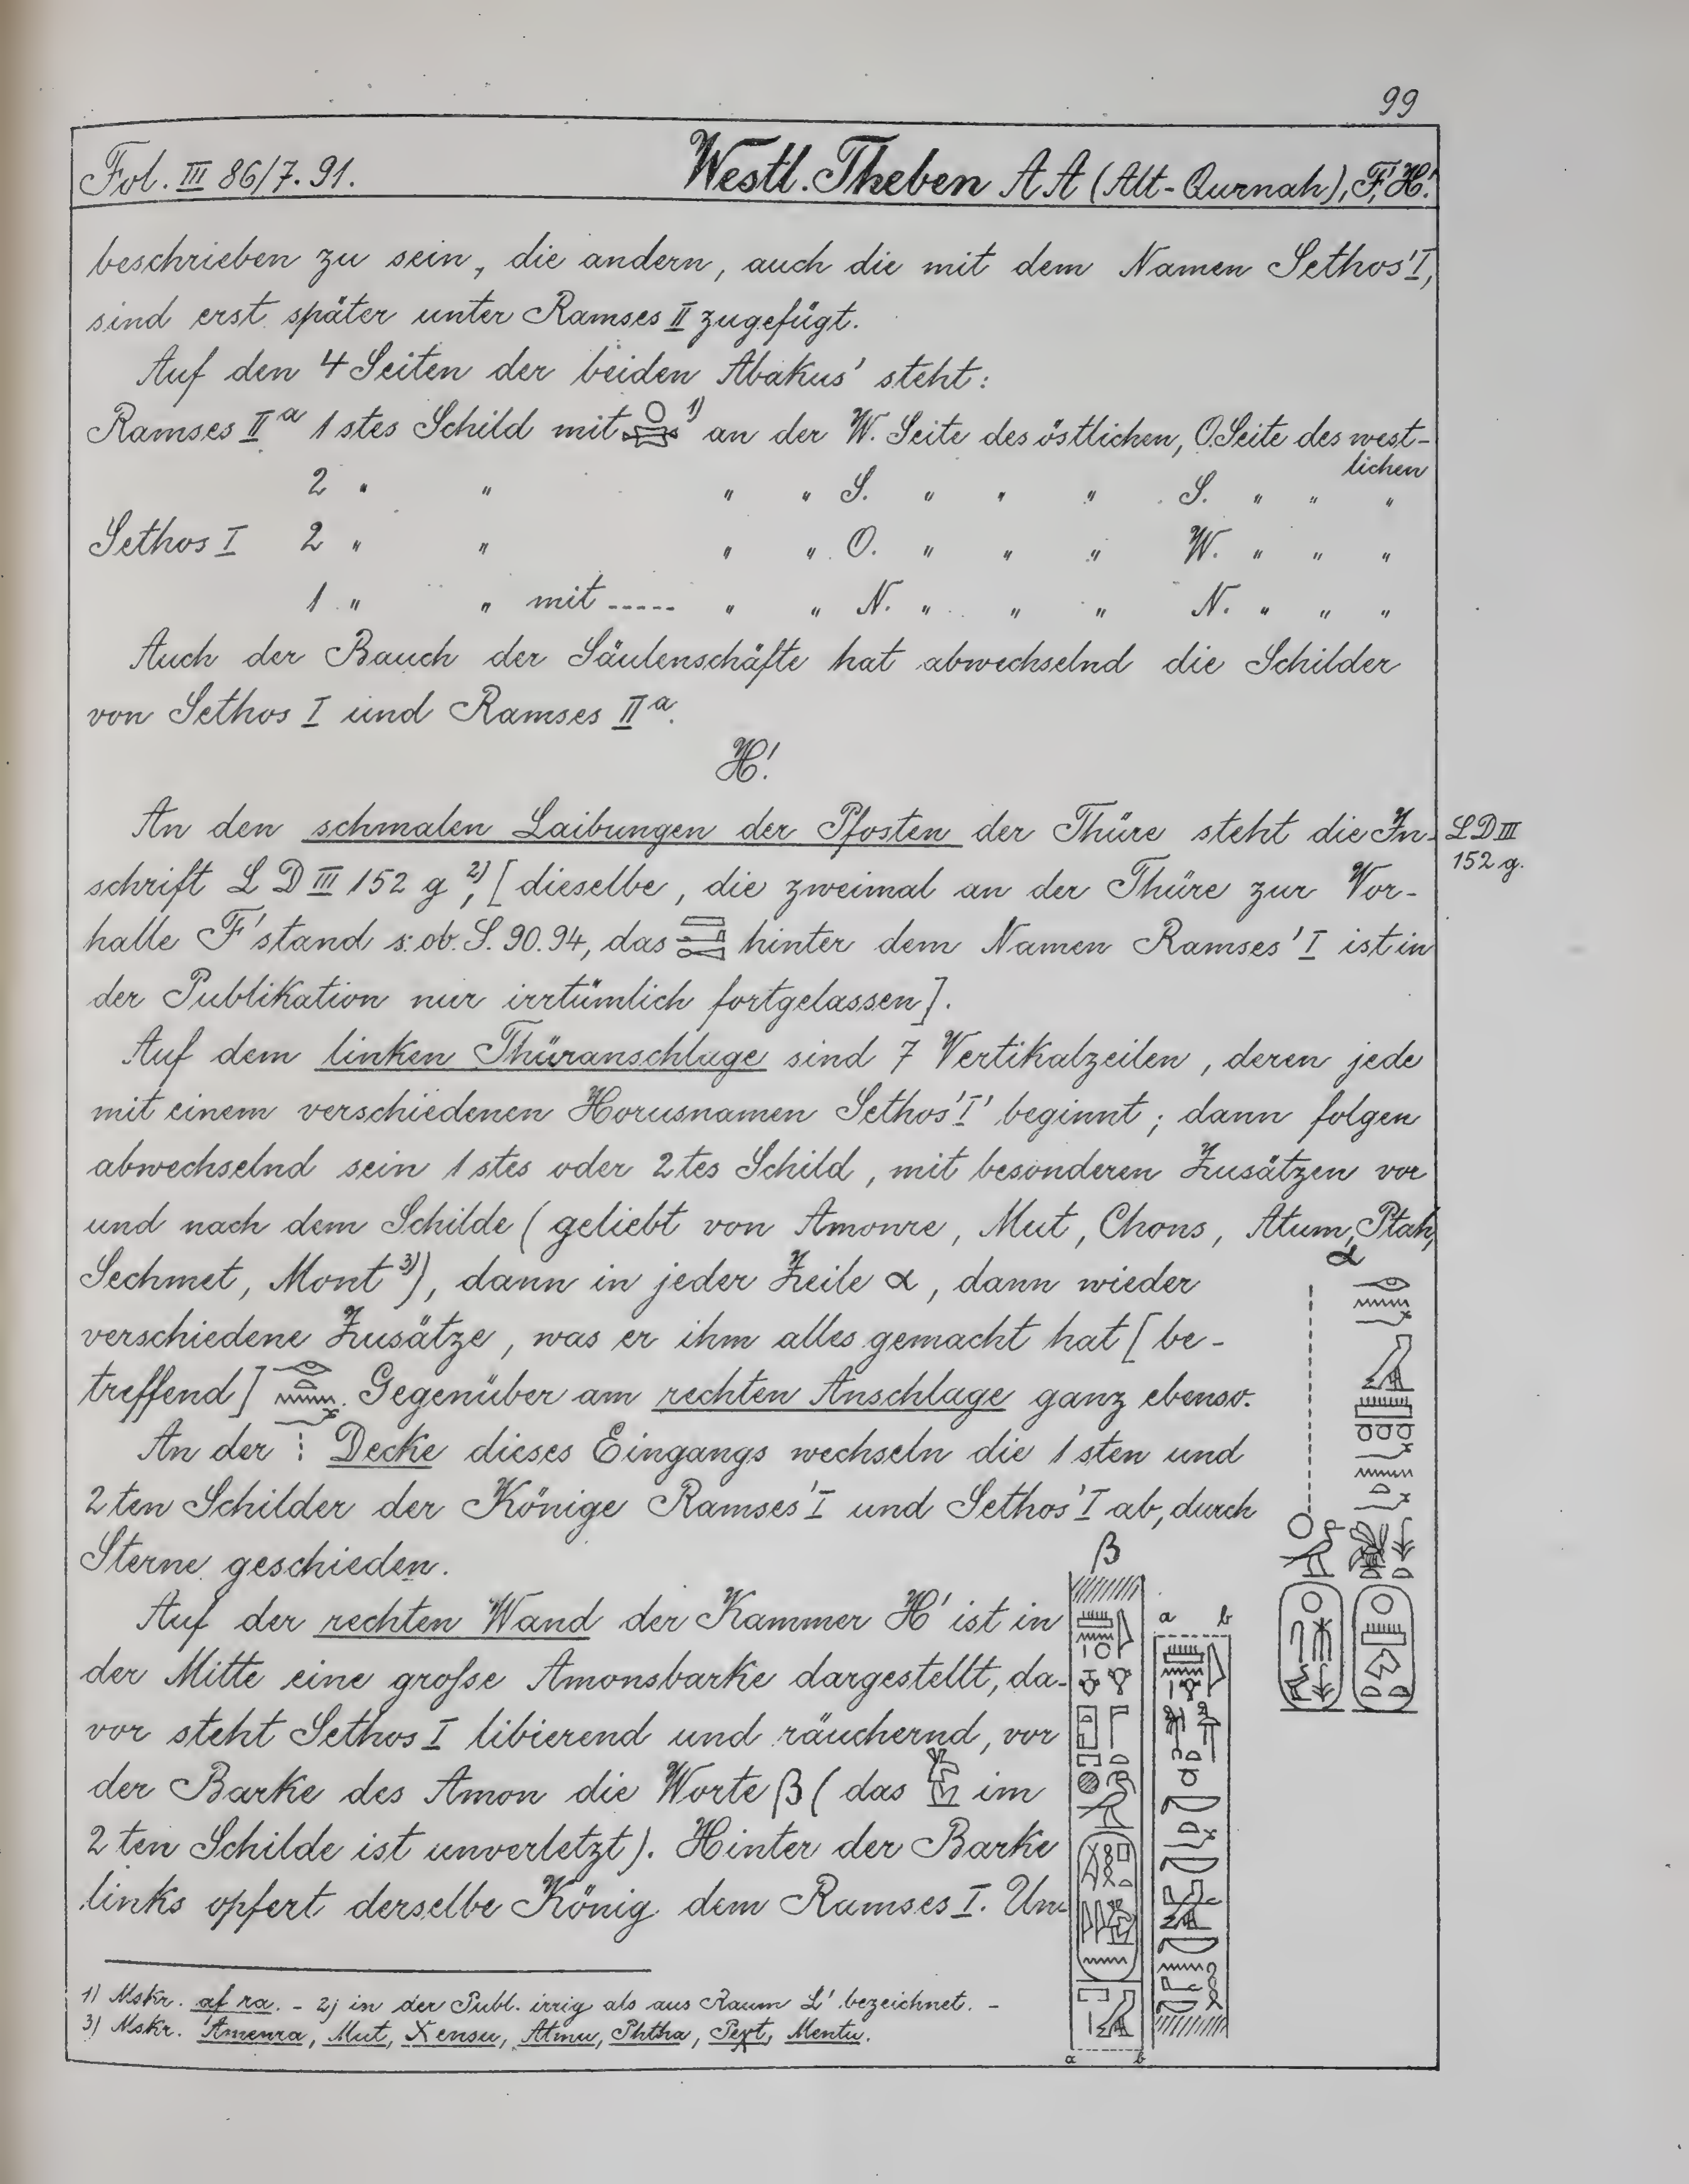 99
Fol. III 86/7. 91. Westl. Theben A A (Alt-Qurnah), F', H'.
beschrieben zu sein, die andern, auch die mit dem Namen Sethos' I,
sind erst später unter Ramses II zugefügt.
Auf den 4 Seiten der beiden Abakus' steht:
Ramses IIa 1stes Schild mit 1) an der W. Seite des östlichen, O. Seite des west-
lichen
2 " " " " S. " " " S. " " "
Sethos I 2 " " " " O. " " " W. " " "
1 " " mit ----- " " N. " " " N. " " "
Auch der Bauch der Säulenschäfte hat abwechselnd die Schilder
von Sethos I und Ramses IIa.
H'.
An den schmalen Laibungen der Pfosten der Thüre steht die In-
LD III
152 g.
schrift L D III 152 g 2), [dieselbe, die zweimal an der Thüre zur Vor-
halle F' stand s. ob. S. 90. 94, das hinter dem Namen Ramses' I ist in
der Publikation nur irrtümlich fortgelassen].
Auf dem linken Thüranschlage sind 7 Vertikalzeilen, deren jede
mit einem verschiedenen Horusnamen Sethos' I' beginnt; dann folgen
abwechselnd sein 1stes oder 2tes Schild, mit besonderen Zusätzen vor
und nach dem Schilde (geliebt von Amonre, Mut, Chons, Atum, Ptah,
Sechmet, Mont 3)), dann in jeder Zeile α, dann wieder
α
verschiedene Zusätze, was er ihm alles gemacht hat [be-
treffend] . Gegenüber am rechten Anschlage ganz ebenso.
An der ¦ Decke dieses Eingangs wechseln die 1sten und
2ten Schilder der Könige Ramses' I und Sethos' I ab, durch
Sterne geschieden.
β
Auf der rechten Wand der Kammer H' ist in
a b
der Mitte eine große Amonsbarke dargestellt, da-
vor steht Sethos I libierend und räuchernd, vor
der Barke des Amon die Worte β (das im
2ten Schilde ist unverletzt). Hinter der Barke
links opfert derselbe König dem Ramses I. Um-
a b
1) Mskr. af ra. - 2) in der Publ. irrig als aus Raum L' bezeichnet. -
3) Mskr. Amenra, Mut, Xensu, Atmu, Phtha, Pext, Mentu.